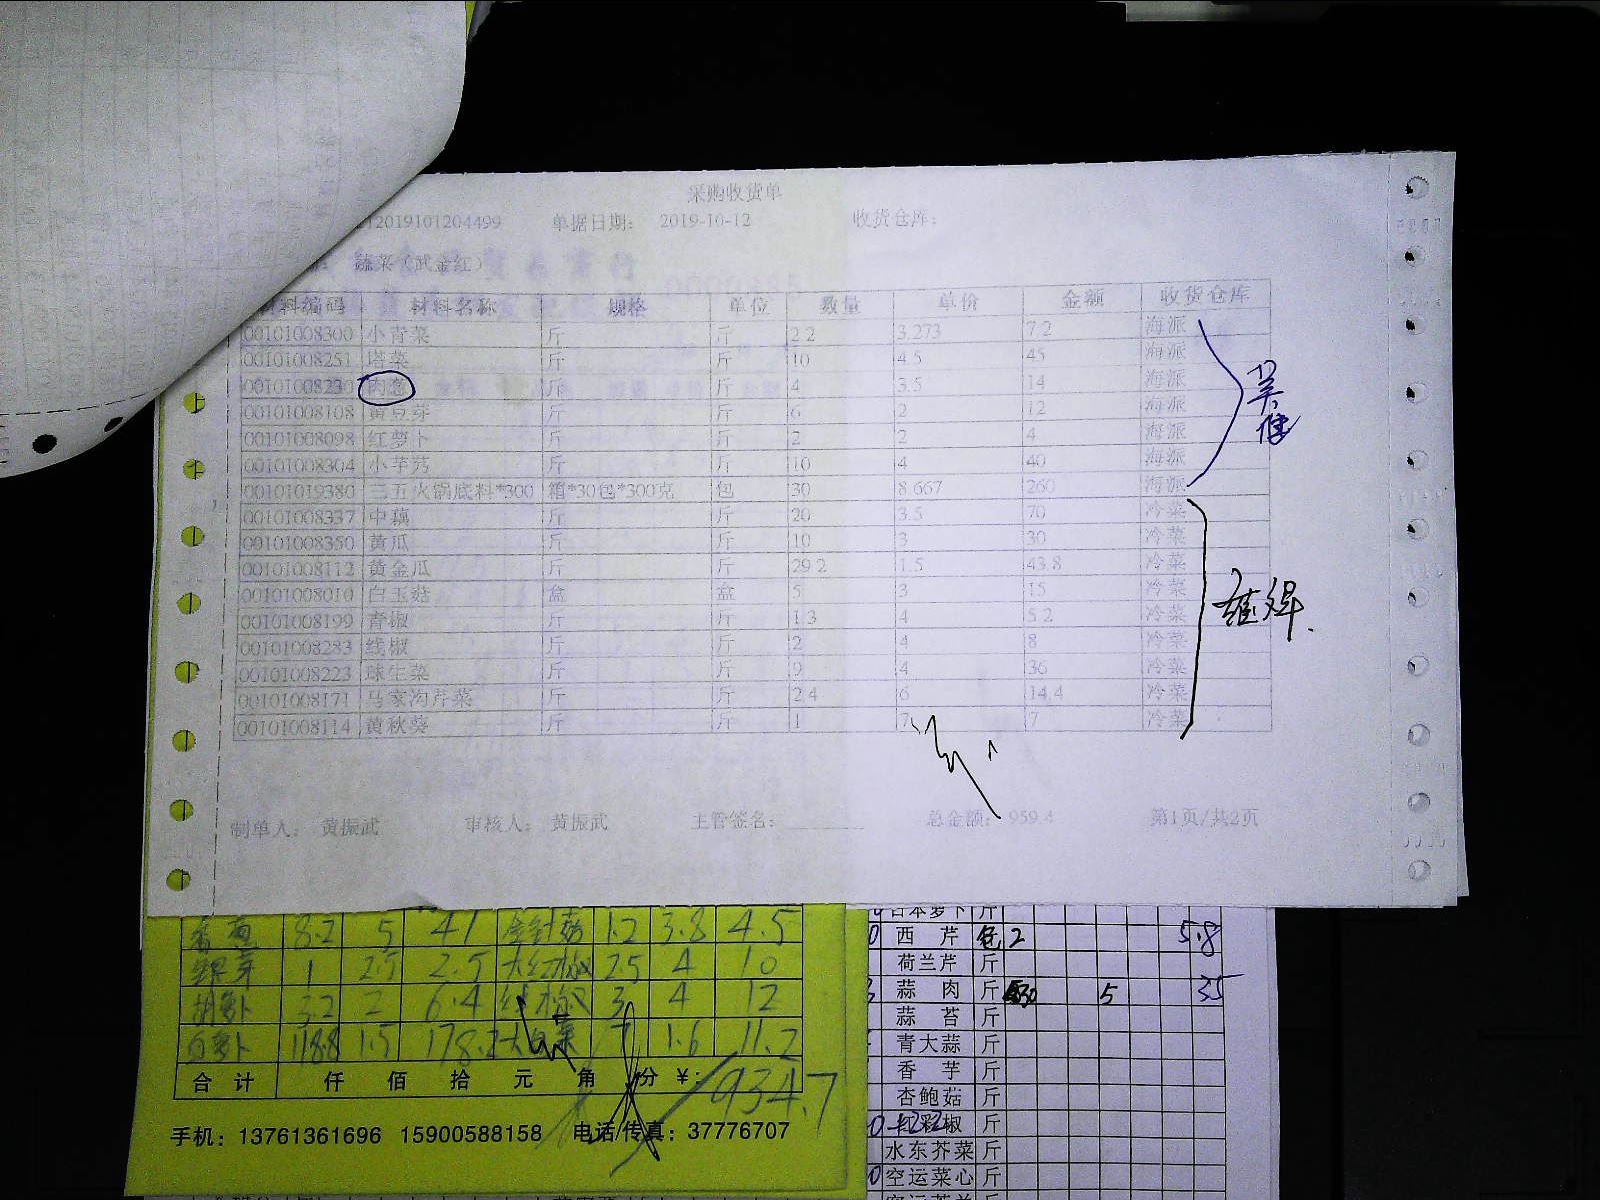 采购收货单
12019101204499 单据日期: 2019-10-12 收货仓库:
蔬菜(武金红)
材料编码 材料名称 规格 单位 数量 单价 金额 收货仓库
00101008300 小青菜 斤 斤 2.2 3.273 7.2 海派
00101008251 塔菜 斤 斤 10 4.5 45 海派
斤 斤 4 3.5 14 海派
00101008108 黄豆芽 斤 斤 6 2 12 海派
00101008098 红萝卜 斤 斤 2 2 4 海派
00101008304 小芋艿 斤 斤 10 4 40 海派
00101019380 三五火锅底料*300 箱*30包*300克 包 30 8.667 260 海派
00101008337 中藕 斤 斤 20 3.5 70 冷菜
00101008350 黄瓜 斤 斤 10 3 30 冷菜
00101008112 黄金瓜 斤 斤 29.2 1.5 43.8 冷菜
00101008010 白玉菇 盒 盒 5 3 15 冷菜
00101008199 青椒 斤 斤 1.3 4 5.2 冷菜
00101008283 线椒 斤 斤 2 4 8 冷菜
00101008223 球生菜 斤 斤 9 4 36 冷菜
00101008171 马家沟芹菜 斤 斤 2.4 6 14.4 冷菜
00101008114 黄秋葵 斤 斤 1 7 7 冷菜
制单人: 黄振武 审核人: 黄振武 主管签名: 总金额: 959.4 第1页/共2页
8.2 5 41 金针菇 1.2 3.8 4.5
1 2.5 2.5 大红椒 2.5 4 10
胡萝卜 3.2 2 6.4 线椒 3 4 12
白萝卜 118.8 1.5 178.2 大白菜 7 1.6 11.2
合计 仟 佰 拾 元 角 分 ¥: 934.7
手机: 13761361696 15900588158 电话/传真: 37776707
日本萝卜 斤
西芹 2 5.8
荷兰芹 斤
蒜肉 斤 5 35
蒜苔 斤
青大蒜 斤
香芋 斤
杏鲍菇 斤
椒 斤
水东芥菜 斤
空运菜心 斤